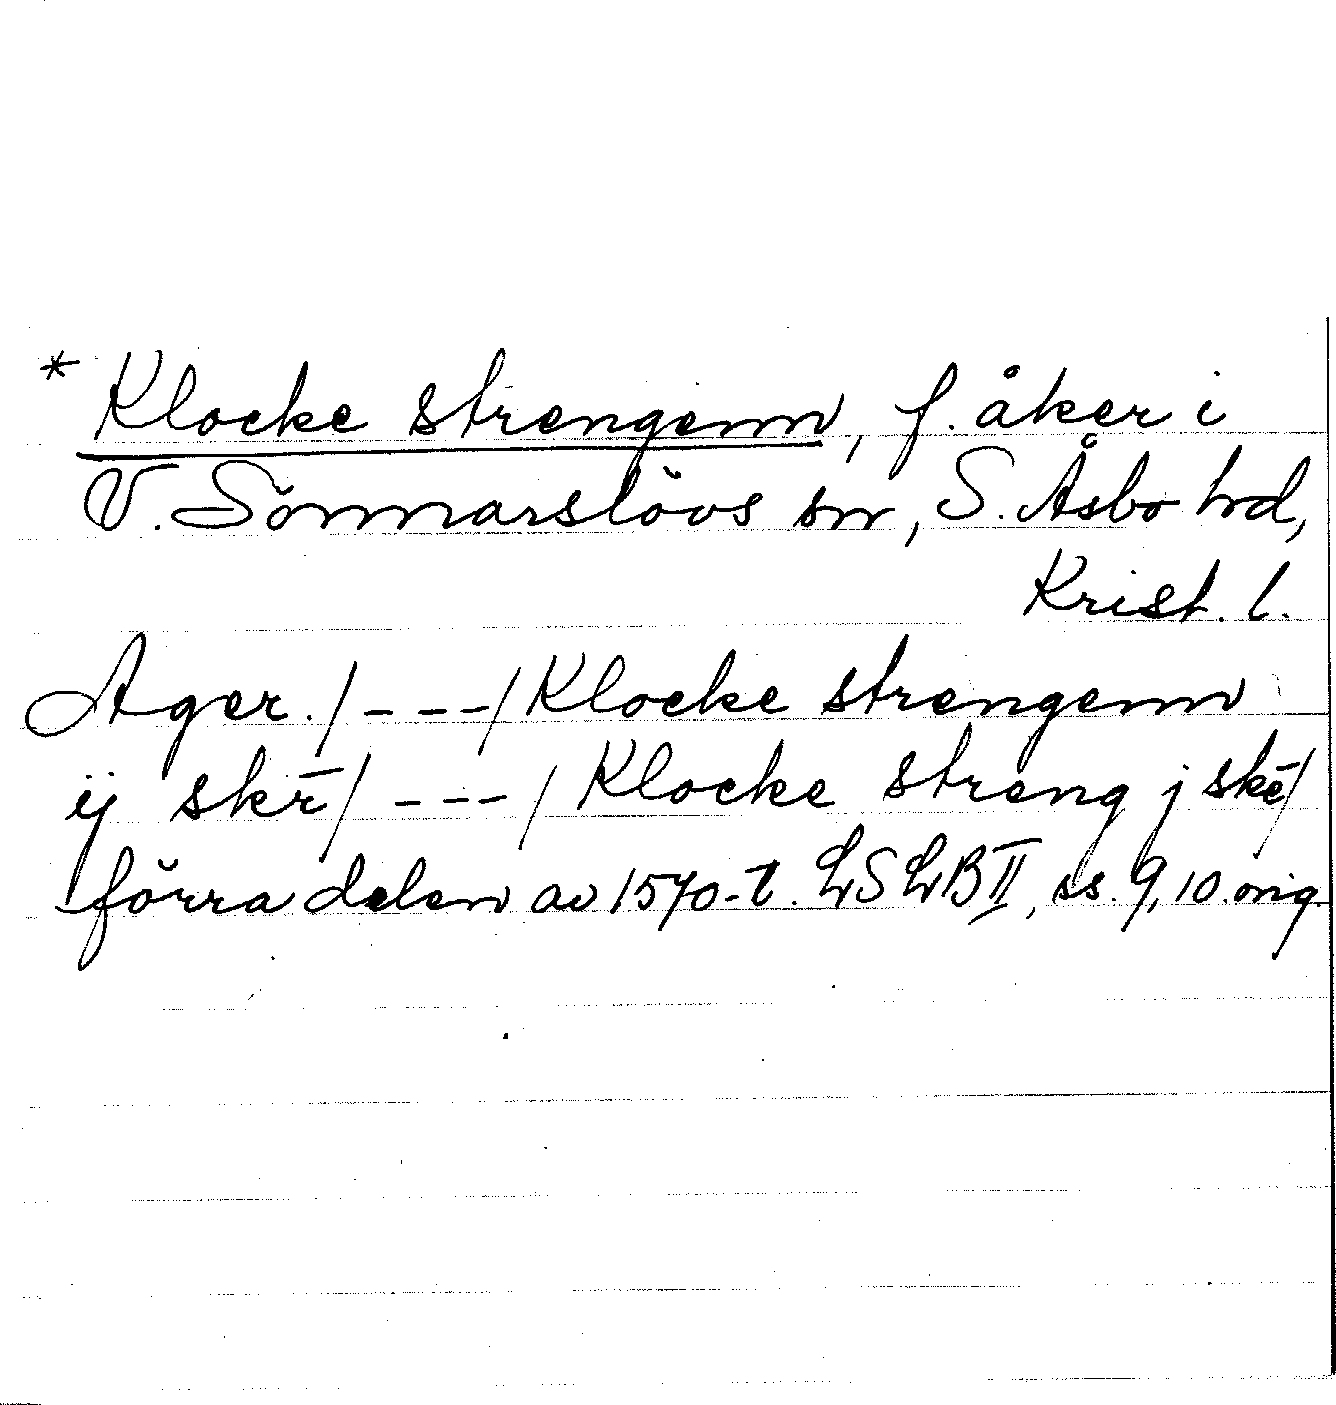 * Klocke strengenn, f. åker i
V. Sönnarslövs sn, S. Åsbo hd,
Krist. l.
Ager. /---/ Klocke strengenn
ij skr̄ /---/ Klocke streng j skē/
förra delen av 1570-t. LSLB II, ss. 9, 10. orig.